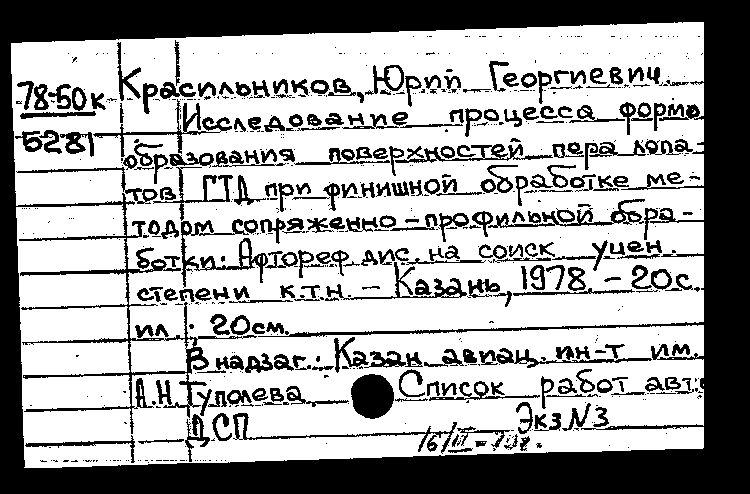 78-50к Красильников, Юрий Георгиевич.
5281 Исследование процесса формо
образования поверхностей пера лопа-
тов ГТД при финишной обработке ме-
тодом сопряженно-профильной обра-
ботки: Афтореф. дис. на соиск учен.
степени к.т.н. - Казань, 1978. - 20с.
ил.; 20см.
В надзаг.: Казан. авиац. ин-т им.
А.Н.Туполева. Список работ авт.:
ДСП Экз N3